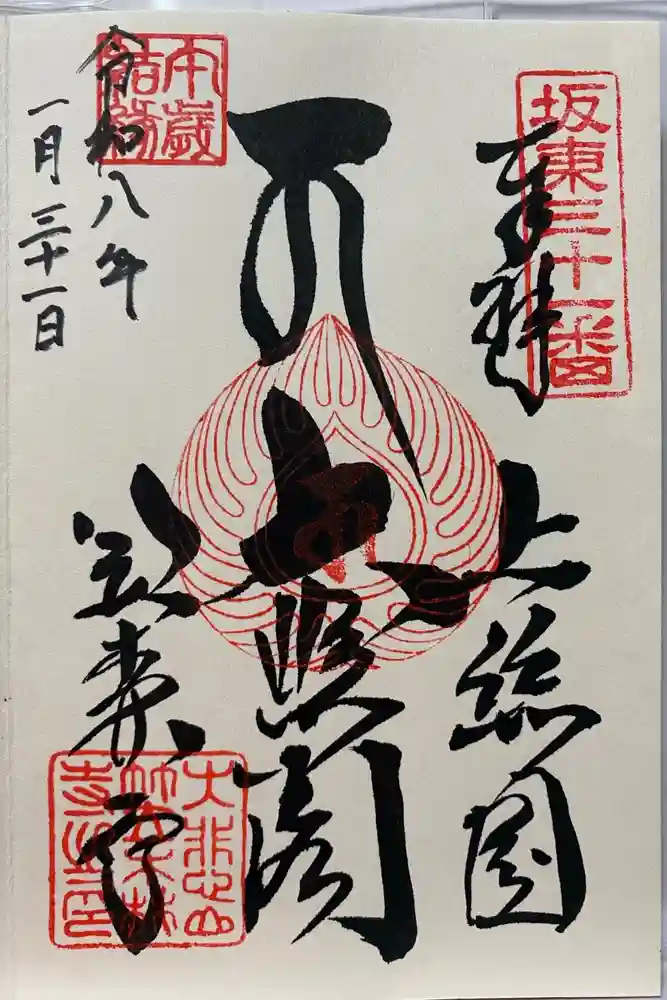 坂東三十一番
奉拝
上総国
大悲閣
本歳
結縁
令和八年
一月三十一日
笠森寺
大悲山
笠森
寺之印